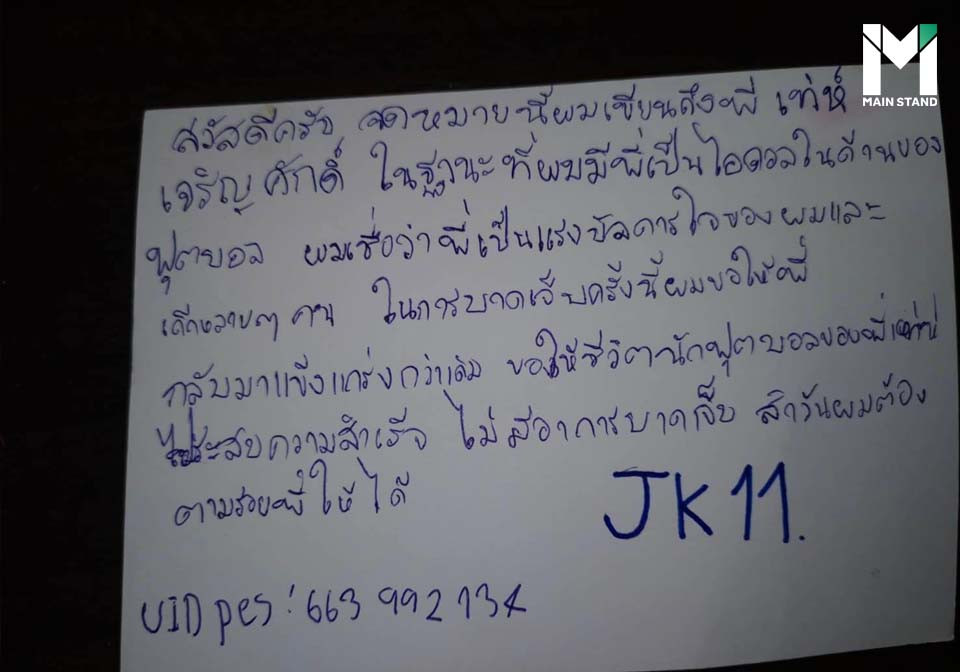 MAIN STAND
สวัสดีครับ จดหมายนี้ผมเขียนถึงพี่ เท่ห์
เจริญศักดิ์ ในฐานะที่ผมมีพี่เป็นไอดอลในด้านของ
ฟุตบอล ผมเชื่อว่าพี่เป็นแรงบัลดารใจของผมและ
เด็กหลายๆ คน ในการบาดเจ็บครั้งนี้ผมขอให้พี่
กลับมาแข็งแกร่งกว่าเดิม ขอให้ชีวิตนักฟุตบอลของพี่เท่ห์
ประสบความสำเร็จ ไม่มีอาการบาดเจ็บ สักวันผมต้อง
ตามรอยพี่ให้ได้
JK 11.
UID pes : 663 992 134